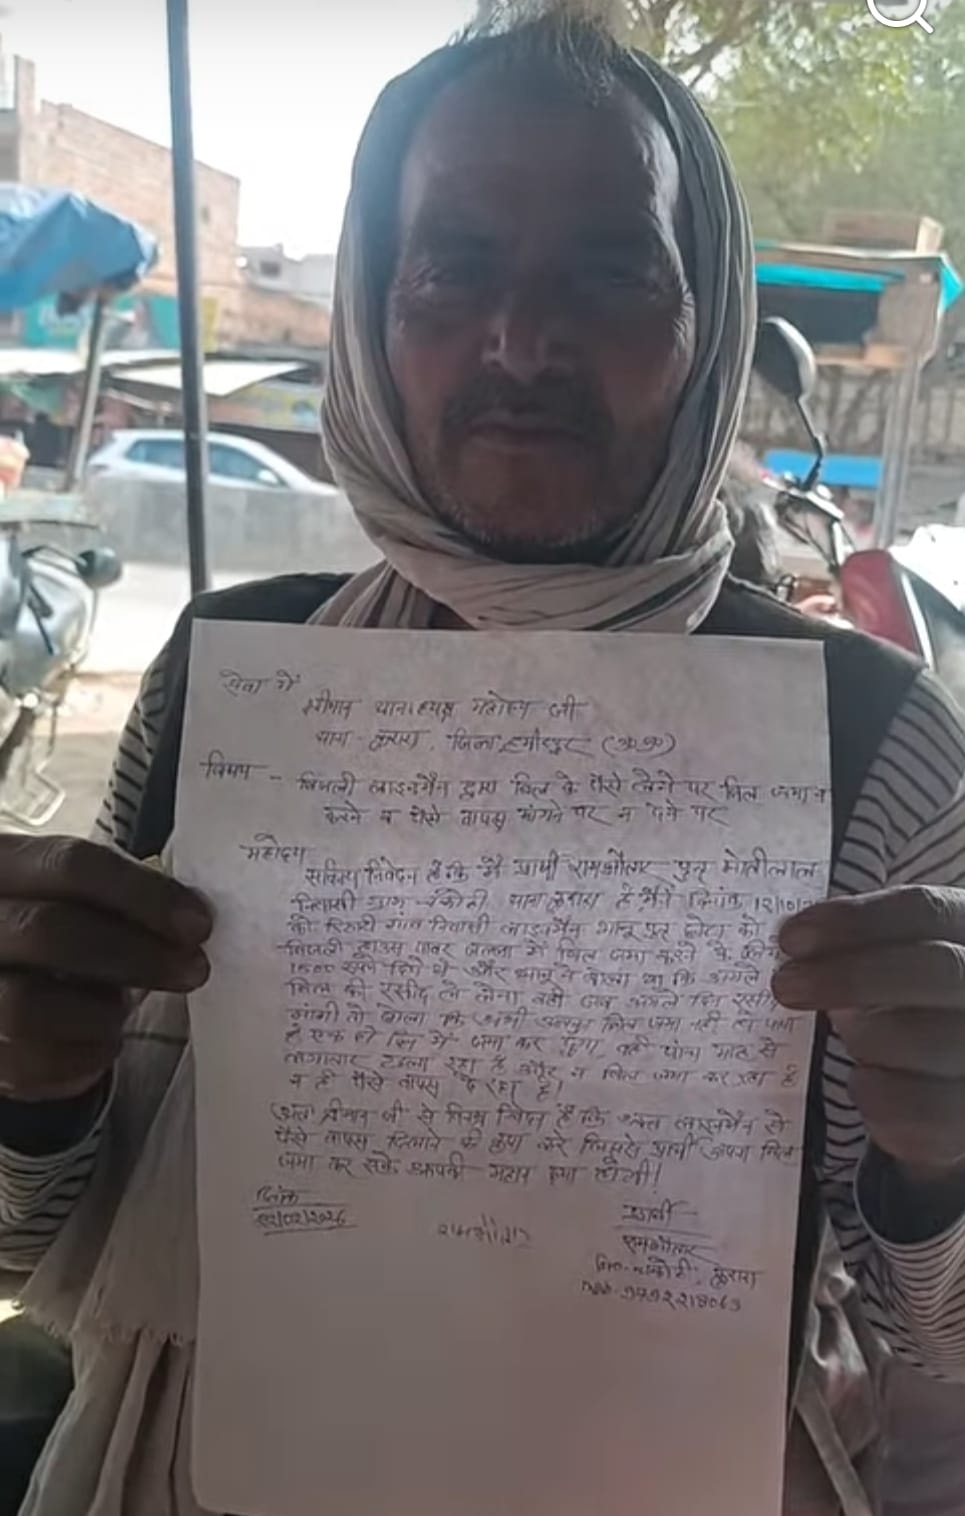 सेवा में
श्रीमान थानाध्यक्ष महोदय जी
थाना - कुरारा, जिला हमीरपुर (उ०प्र०)
विषय - बिजली लाइनमैन द्वारा बिल के पैसे लेने पर बिल जमा न
करने व पैसे वापस मांगने पर न देने पर
महोदय
सविनय निवेदन है कि मैं प्रार्थी रामऔतार पुत्र मोतीलाल
निवासी ग्राम चकोठी थाना कुरारा है मैंने दिनांक 12/10/
को रिठारी गांव निवासी लाइनमैन भानू पुत्र छोटा को
बिजली हाउस पावर में बिल जमा करने के लिए
1500 रुपये दिये थे और भानू ने बोला था कि अगले
बिल की रसीद ले लेना वही जब अगले दिन रसीद
मांगी तो बोला कि अभी आपका बिल जमा नहीं हो पाया
है एक दो दिन में जमा कर दूंगा, वही पांच माह से
लगातार टहला रहा है और न बिल जमा कर रहा है
न ही पैसे वापस दे रहा है।
अतः श्रीमान जी से विनम्र निवेदन है कि उक्त लाइनमैन से
पैसे वापस दिलाने की कृपा करें जिससे प्रार्थी अपना बिल
जमा कर सके आपकी महान कृपा होगी।
दिनांक
02/2026
रामऔतार
प्रार्थी
रामऔतार
नि०- चकोठी, कुरारा
मो०- 9792218063